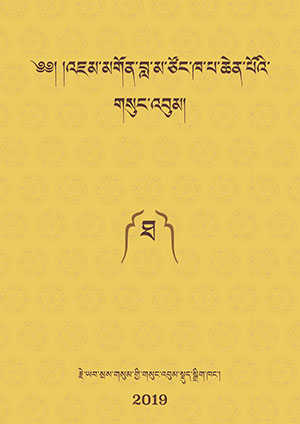 ༄༅། །འཇམ་མགོན་བླ་མ་ཙོང་ཁ་པ་ཆེན་པོའི་
གསུང་འབུམ།
ཐ
རྗེ་ཡབ་སྲས་གསུམ་གྱི་གསུང་འབུམ་སྡུད་སྒྲིག་ཁང་།
2019